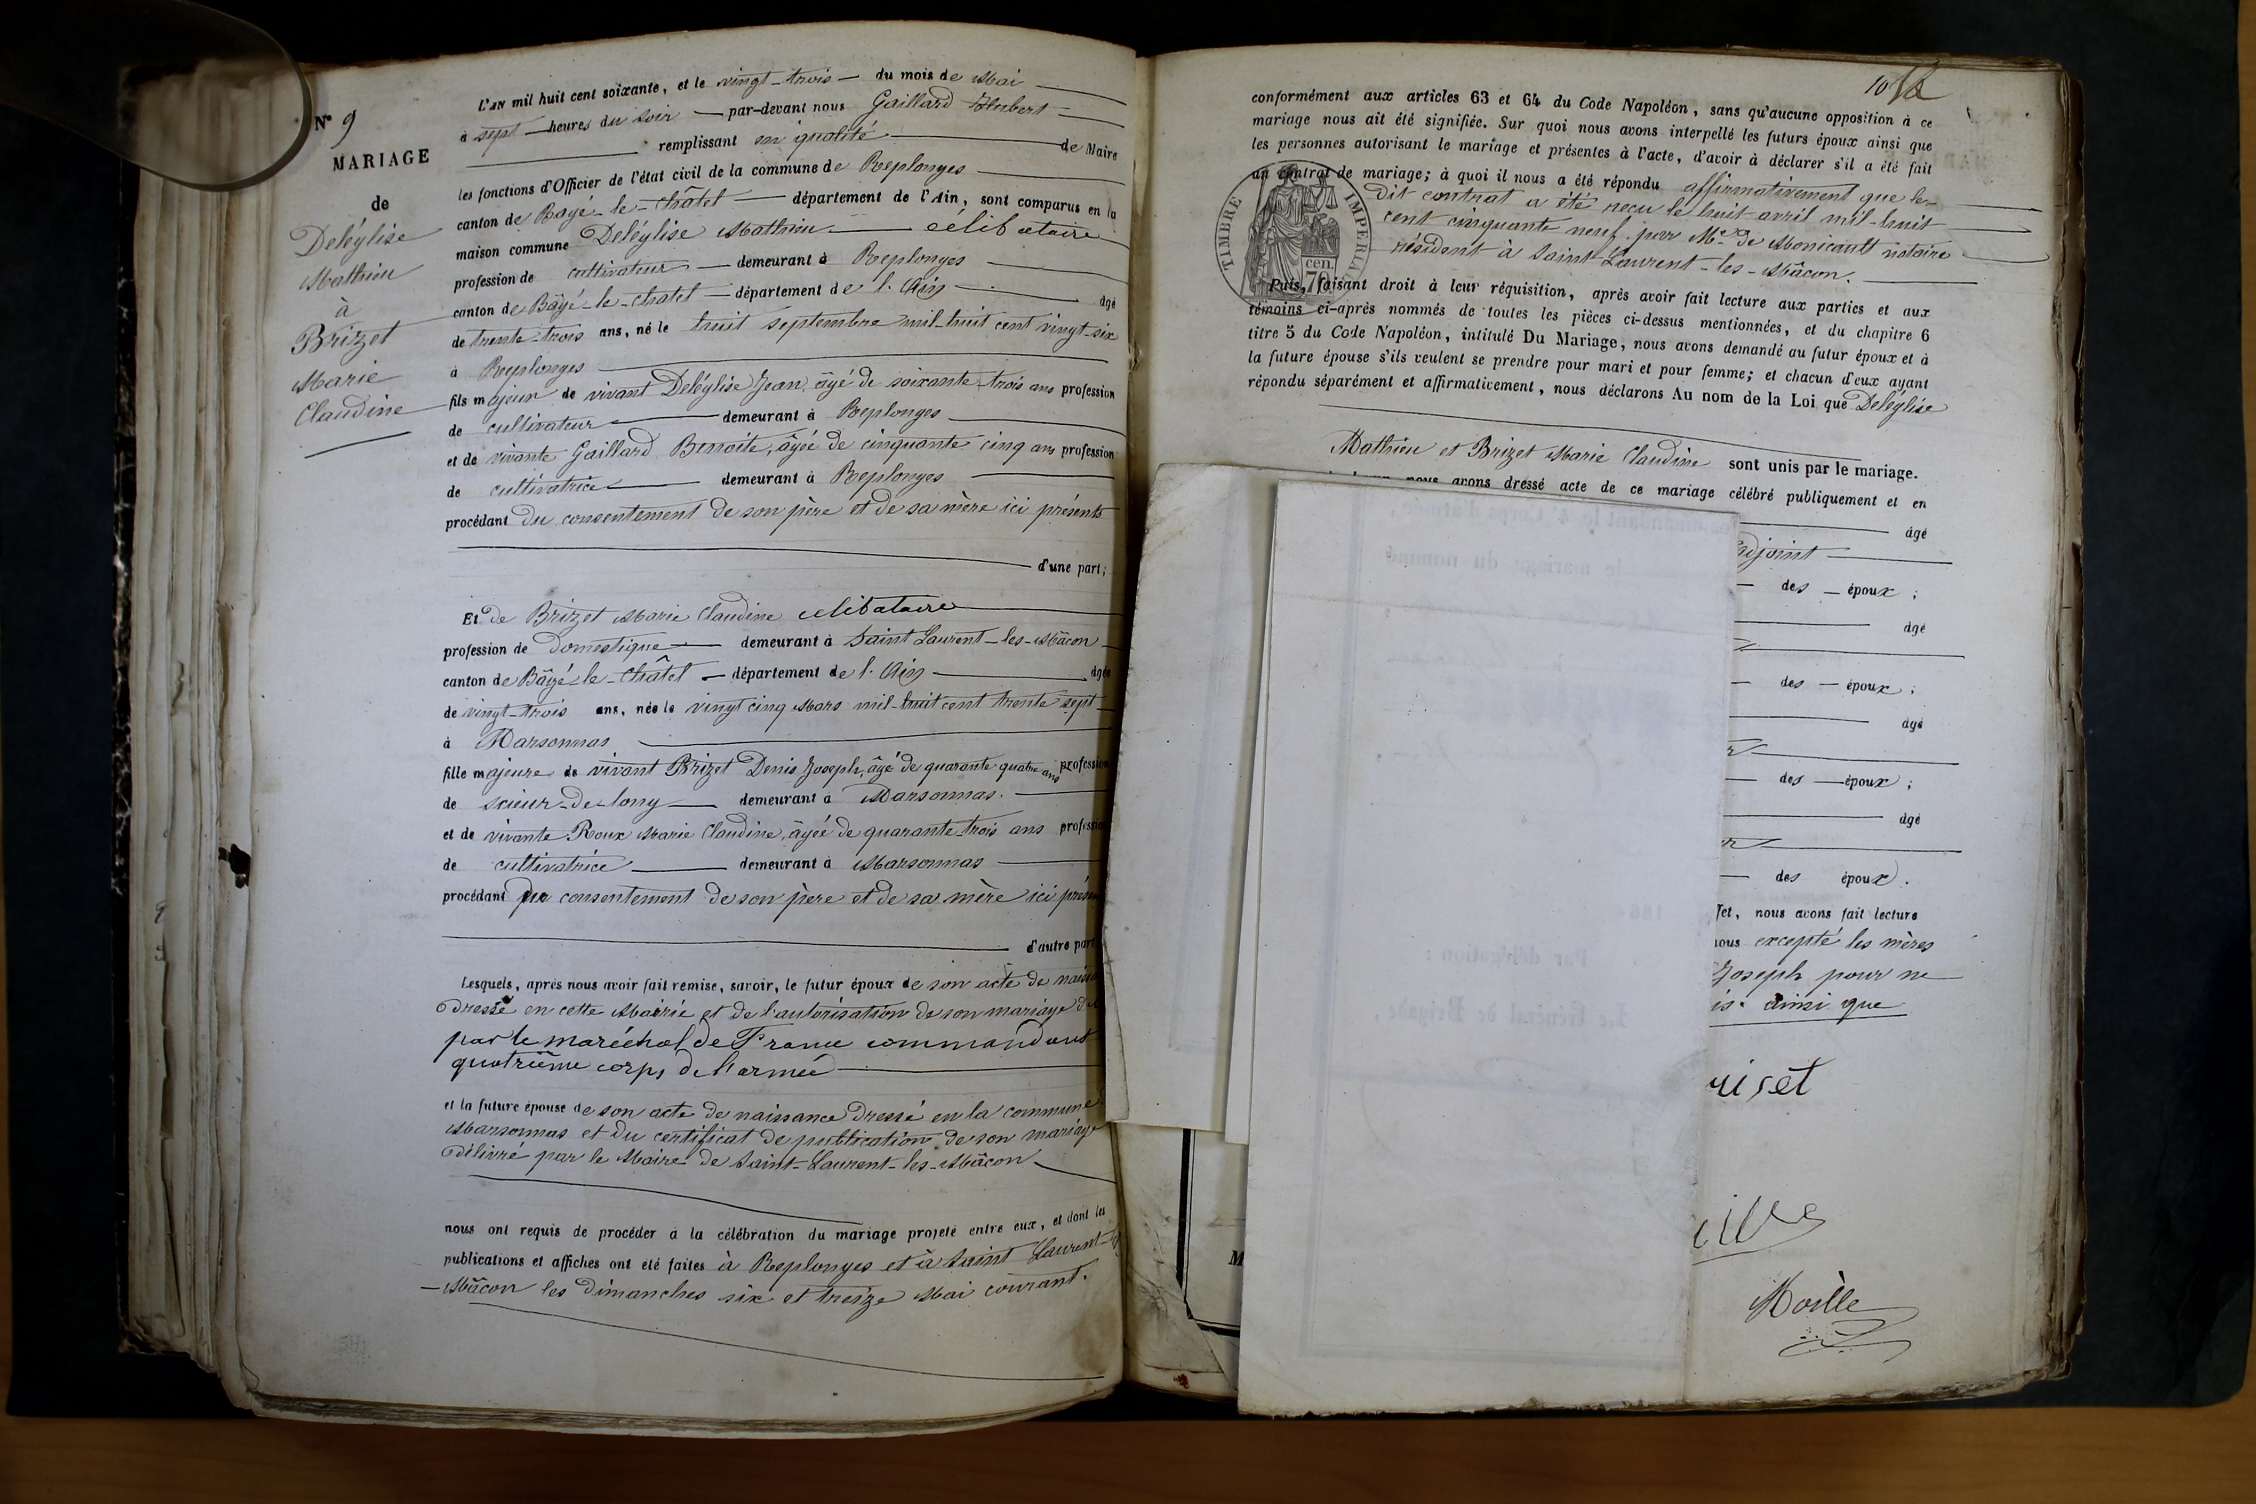 N° 9
MARIAGE
de
Deléglise
Mathieu
à
Brizet
Marie
Claudine
L'AN mil huit cent soixante, et le vingt-trois du mois de Mai
à sept heures du soir par-devant nous Gaillard Hubert
remplissant en qualité de Maire
les fonctions d'Officier de l'état civil de la commune de Replonges
canton de Bâgé-le-Châtel département de l'Ain, sont comparus en la
maison commune Deléglise Mathieu célibataire
profession de cultivateur demeurant à Replonges
canton de Bâgé-le-Chatel département de l'Ain âgé
de trente-trois ans, né le huit septembre mil-huit cent vingt-six
à Replonges
fils majeur de vivant Deléglise Jean, âgé de soixante-trois ans profession
de cultivateur demeurant à Replonges
et de vivante Gaillard Benoite, âgée de cinquante cinq ans profession
de cultivatrice demeurant à Replonges
procédant du consentement de son père et de sa mère ici présents
d'une part;
Et de Brizet Marie Claudine célibataire
profession de domestique demeurant à Saint Laurent-les-Mâcon
canton de Bâgé-le-Châtel département de l'Ain âgée
de vingt-trois ans, née le vingt cinq Mars mil-huit cent trente sept
à Marsonnas
fille majeure de vivant Brizet Denis Joseph, âgé de quarante quatre ans profession
de scieur-de-long demeurant à Marsonnas.
et de vivante Roux Marie Claudine, âgée de quarante-trois ans profession
de cultivatrice demeurant à Marsonnas
procédant du consentement de son père et de sa mère ici présen
d'autre part
Lesquels, après nous avoir fait remise, savoir, le futur époux de son acte de naiss
dressé en cette Mairie et de l'autorisation de son mariage
par le maréchal de France commandant
quatrième corps de l'armée
et la future épouse de son acte de naissance dressé en la commune
Marsonnas et du certificat de publication de son mariage
délivré par le Maire de Saint-Laurent-les-Mâcon
nous ont requis de procéder à la célébration du mariage projeté entre eux, et dont les
publications et affiches ont été faites à Replonges et à Saint Laurent-les
-Mâcon les dimanches six et treize Mai courant.
10
conformément aux articles 63 et 64 du Code Napoléon, sans qu'aucune opposition à ce
mariage nous ait été signifiée. Sur quoi nous avons interpellé les futurs époux ainsi que
les personnes autorisant le mariage et présentes à l'acte, d'avoir à déclarer s'il a été fait
un contrat de mariage; à quoi il nous a été répondu affirmativement que le
dit contrat a été reçu le huit avril mil-huit
cent cinquante neuf par Me de Monicault notaire
résidant à Saint Laurent-les-Mâcon.
TIMBRE IMPERIAL
70 cen.
Puis, faisant droit à leur réquisition, après avoir fait lecture aux parties et aux
témoins ci-après nommés de toutes les pièces ci-dessus mentionnées, et du chapitre 6
titre 5 du Code Napoléon, intitulé Du Mariage, nous avons demandé au futur époux et à
la future épouse s'ils veulent se prendre pour mari et pour femme; et chacun d'eux ayant
répondu séparément et affirmativement, nous déclarons Au nom de la Loi que Deléglise
Mathieu et Brizet Marie Claudine sont unis par le mariage.
nous avons dressé acte de ce mariage célébré publiquement et en
âgé
adjoint
des époux;
âgé
des époux;
âgé
des époux;
âgé
des époux.
fet, nous avons fait lecture
nous excepté les mères
Joseph pour ne
is. ainsi que
riset
Moille
le mariage du nommé
Par délégation :
Le Général de Brigade,
M